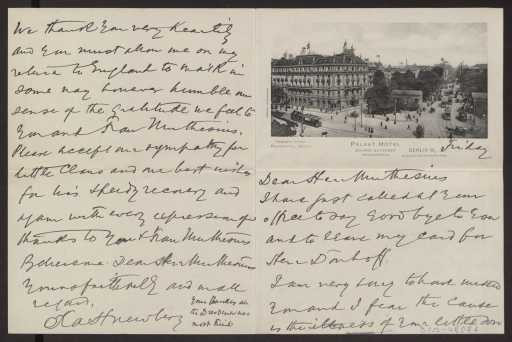 PALAST HOTEL
BERLIN W.
Friday
Dear Herr Muthesius
I have just called at Your
office to say Good bye to You
and to leave my card for
Herr Dönhoff.
I am very sorry to have missed
You and I fear the cause
is the illness of Your little son
We thank You very heartily
and You must allow me on my
return to England to mark in
some way however humble our
sense of the gratitude we feel to
You and Frau Muthesius.
Please accept our sympathy for
little Claus and our best wishes
for his speedy recovery and
again with every expression of
thanks to You & Frau Muthesius
Believe me Dear Herr Muthesius
Yours faithfully and with
regard,
Newbery
Your
the Dresdeners was
most kind